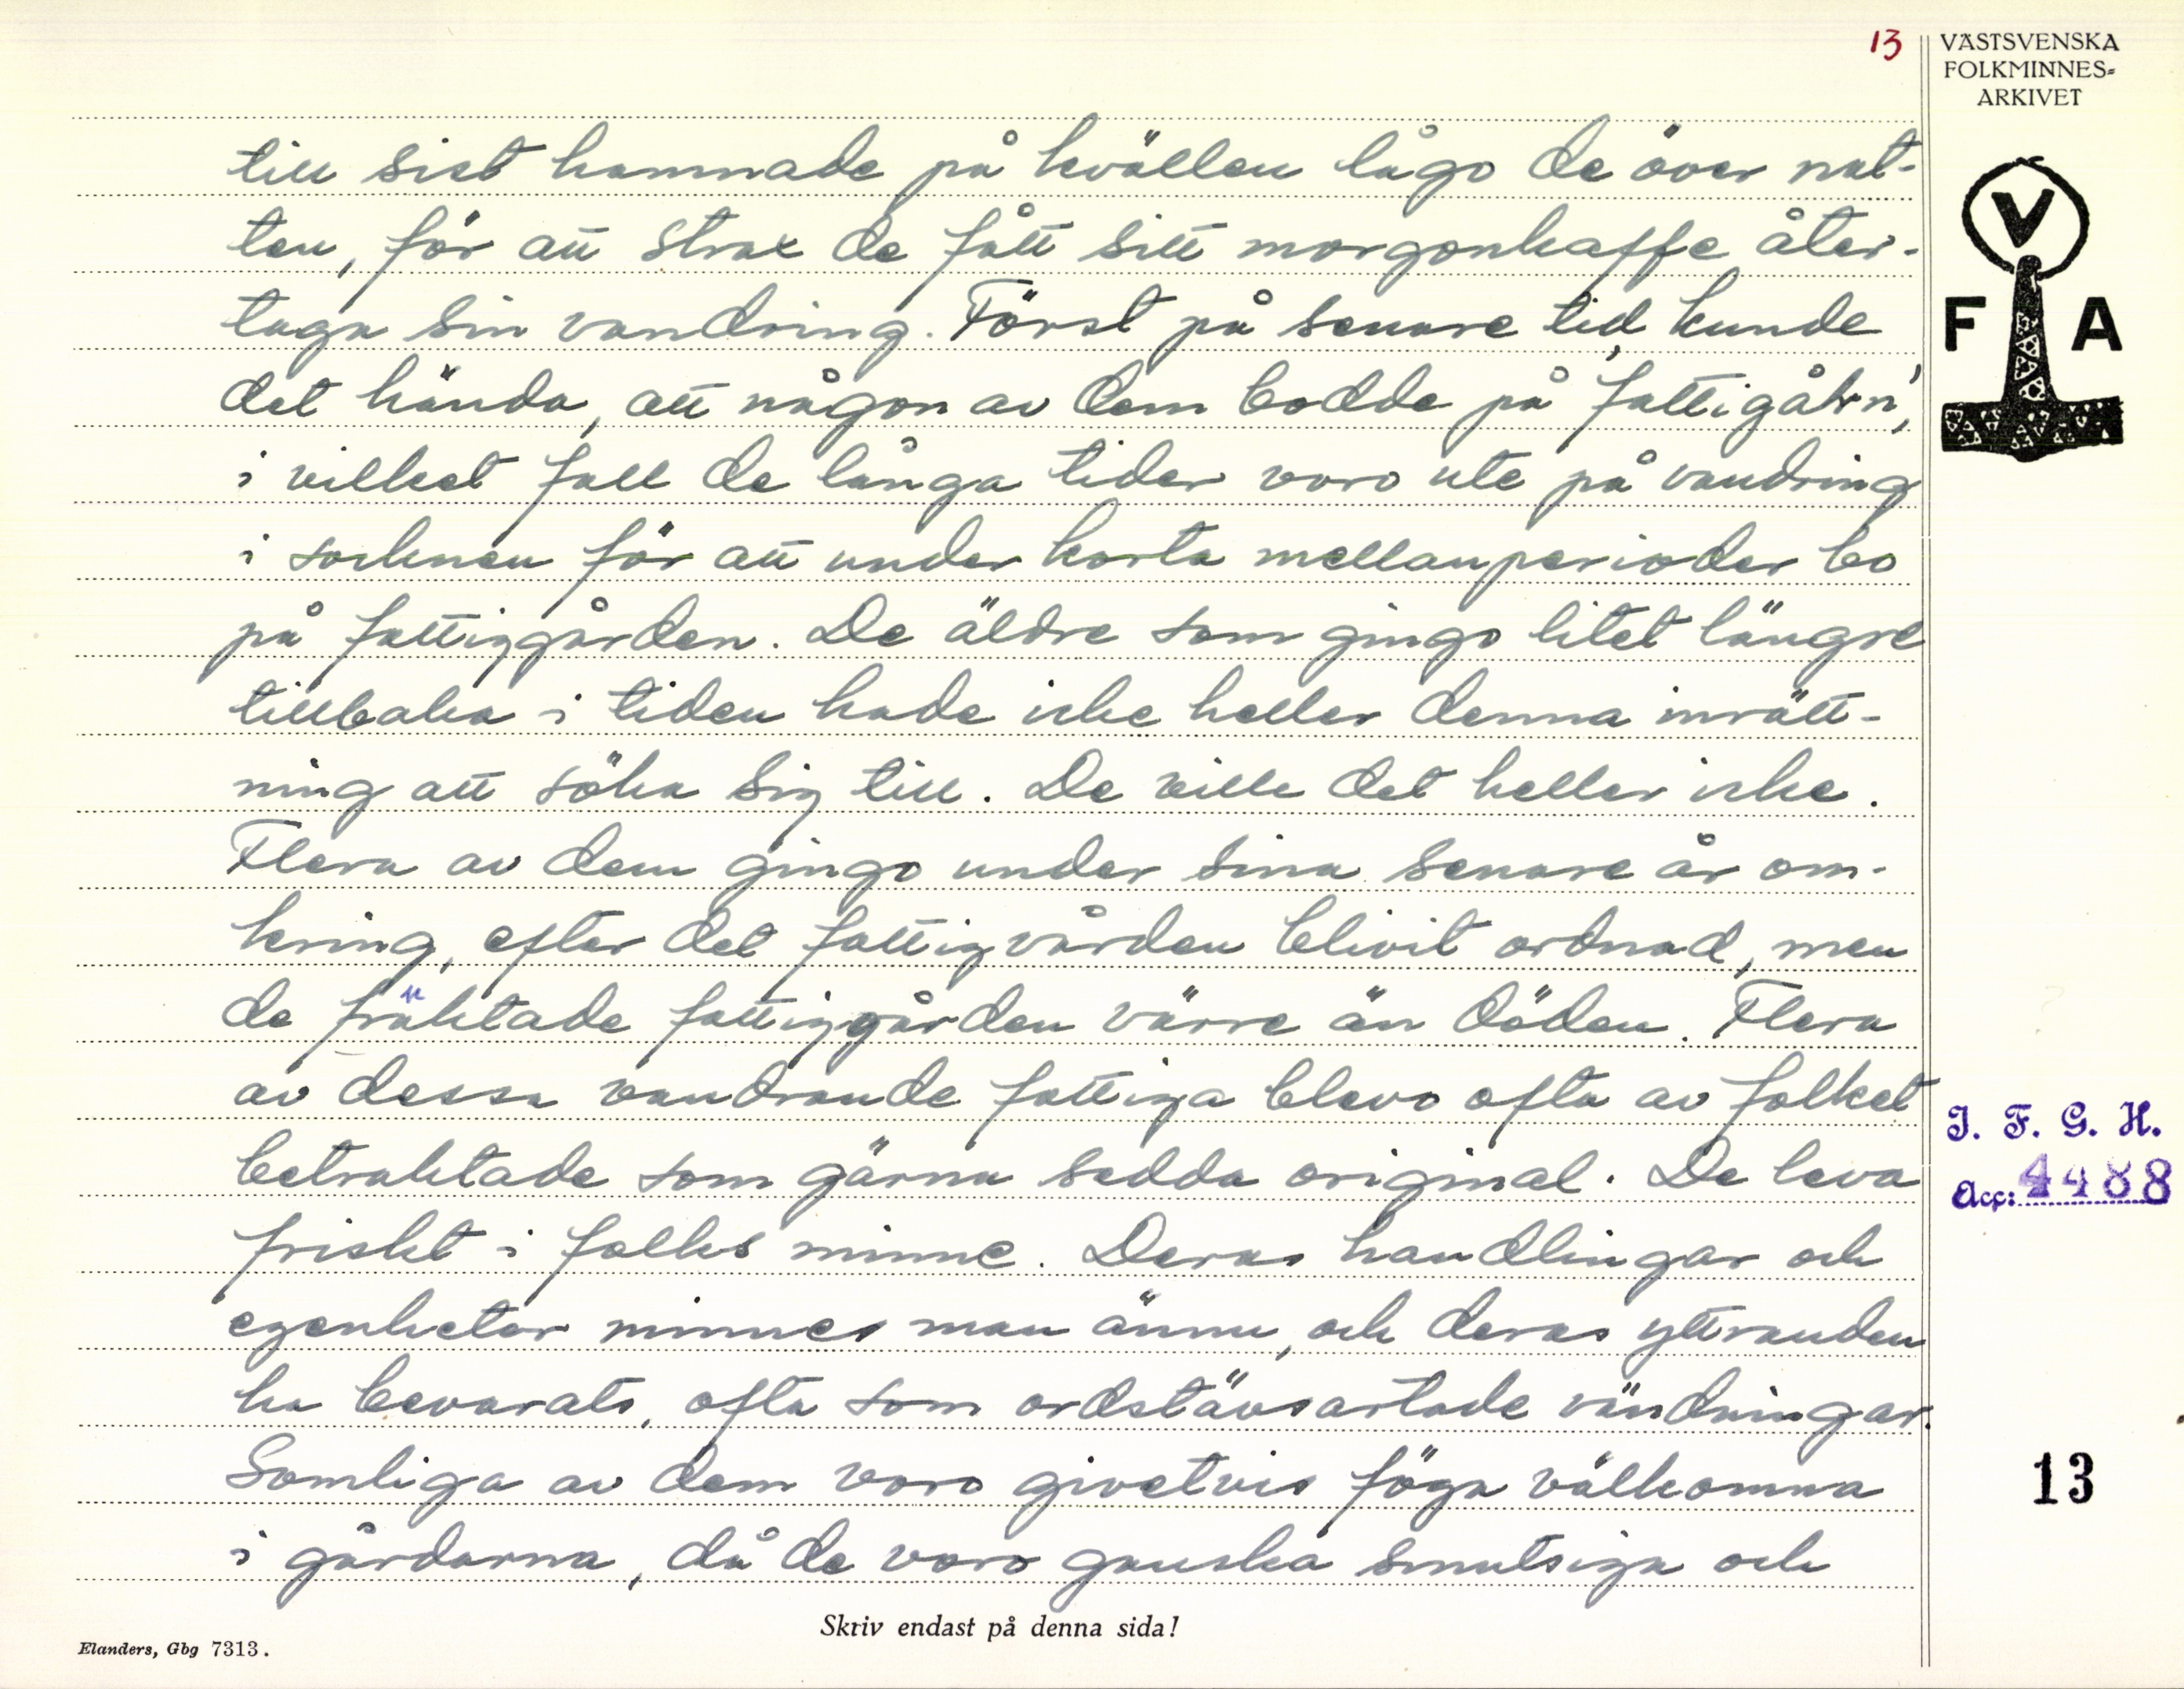 13
VÄSTSVENSKA
FOLKMINNES=
ARKIVET
V
F A
till sist hamnade på kvällen lågo de över nat-
ten, för att strax de fått sitt morgonkaffe åter-
taga sin vandring. Först på senare tid kunde
det hända, att någon av dem bodde på 'fattigåhn',
i vilket fall de långa tider voro ute på vandring
i socknen för att under korta mellanperioder bo
på fattiggården. De äldre som gingo litet längre
tillbaka i tiden hade icke heller denna inrätt-
ning att söka sig till. De ville det heller icke.
Flera av dem gingo under sina senare år om-
kring, efter det fattigvården blivit ordnad, men
de fruktade fattiggården värre än döden. Flera
av dessa vandrande fattiga blevo ofta av folket
betraktade som gärna sedda original. De leva
friskt i folks minne. Deras handlingar och
egenheter minnes man ännu, och deras yttranden
ha bevarats, ofta som ordstävsartade vändningar.
Somliga av dem voro givetvis föga välkomna
i gårdarna, då de voro ganska smutsiga och
I. F. G. H.
Acc: 4488
13
Skriv endast på denna sida!
Elanders, Gbg 7313.